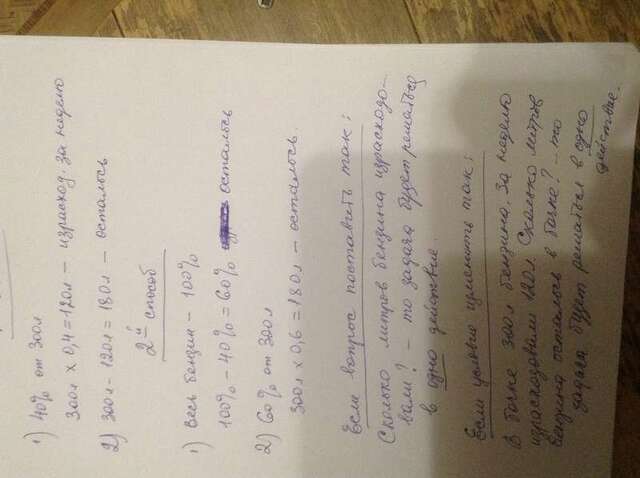 1) 40% от 300л
300л х 0,4 = 120л — израсход. за неделю
2) 300л - 120л = 180л — осталось
2й способ
1) Весь бензин - 100%
100% - 40% = 60% осталось
2) 60% от 300л
300л х 0,6 = 180л — осталось.
Если вопрос поставить так:
Сколько литров бензина израсходо-
вали? - то задача будет решаться
в одно действие.
Если условие изменить так:
В бочке 300л бензина. За неделю
израсходовали 120л. Сколько литров
бензина осталось в бочке? - то
задача будет решаться в одно
действие.